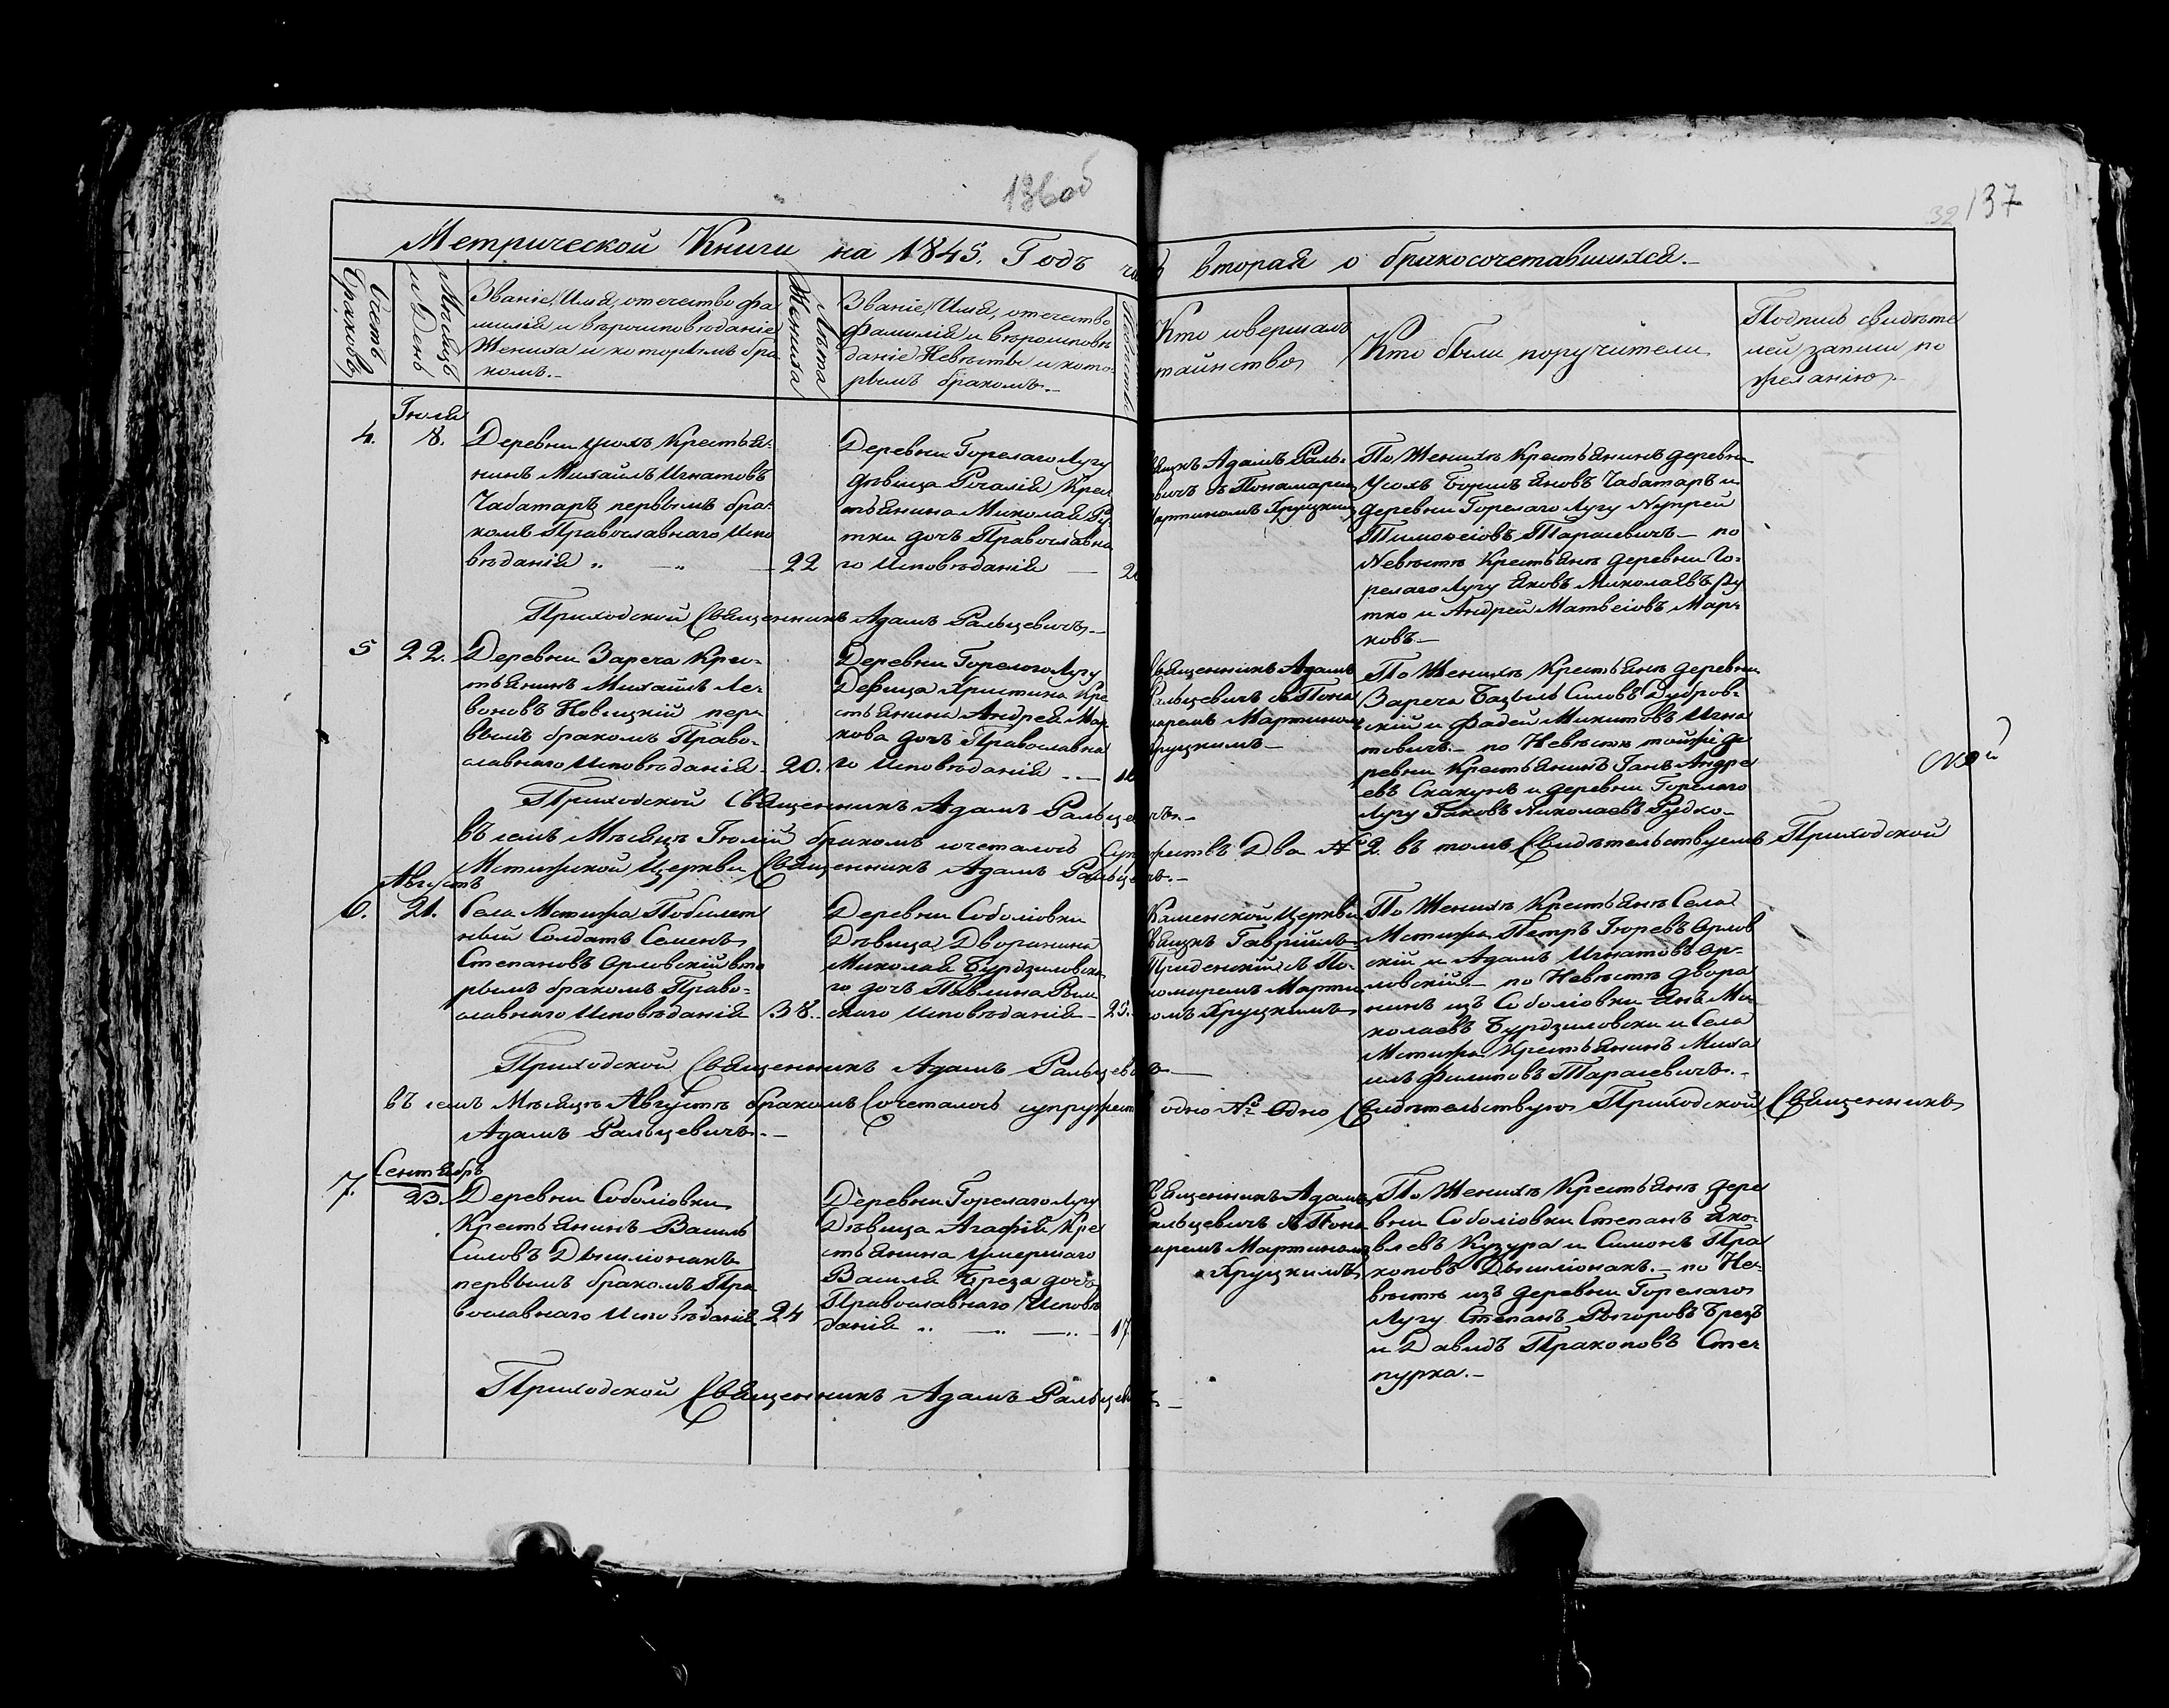 136об
137
32
Метрической Книги на 1845. Годъ
вторая о бракосочетавшихся.-
Счетъ Браковъ
Мѣсяцъ и День
Званіе, Имя, отечество фа
милія и вѣроисповѣданіе
Жениха и которымъ бра
комъ.-
Лѣта Жениха
Званіе, Имя, отечество
Фамилія и вѣроисповѣ
даніе Невѣсты и кото
рымъ бракомъ.-
Невѣсты
Кто совершалъ
таинство
Кто были поручители
Подпись свидѣте
лей записи по
желанію.-
4.
Іюля
8.
Деревни Усохъ Крестья-
нинъ Михаилъ Игнатовъ
Чабатаръ первымъ бра-
комъ Православнаго Испо
вѣданія
22
Деревни Горелаго Лугу
дѣвица Розалія Крес
тьянина Миколая Ру
тки дочь Православна
го Исповѣданія
Адамъ Раль-
евичъ съ Понамаремъ
Мартиномъ Хруцкимъ
По Женихѣ Крестьянинъ деревни
Усохъ Борисъ Яновъ Чабатаръ и
деревни Горелаго Лугу Купрей
Тимоѳеіовъ Тарасевичъ - по
Невѣстѣ Крестьянѣ деревни Го-
релаго Лугу Яковъ Миколаевъ Ру
тко и Андрей Матвеіовъ Мар-
ковъ.-
Приходской Священникъ Адамъ Ральцевичъ.-
5
22.
Деревни Зареча Крес-
тьянинъ Михаилъ Ле-
воновъ Новицкій пер-
вымъ бракомъ Право-
славнаго Исповѣданія
20.
Деревни Горелого Лугу
Девица Христина Кре
стьянина Андрея Мар
кова дочь Православна
го Исповѣданія
Священникъ Адамъ
Ральцевичъ съ Пона
маремъ Мартиномъ
Хруцкимъ
По Женихѣ Крестьянѣ деревни
Зареча Базыль Силовъ Дубров-
скій и Фадей Микитовъ Игна
товичъ.- по Невѣстѣ тойже де
ревни Крестьянинъ Ганъ Андре
евъ Скакунъ и деревни Горелаго
Лугу Гаковъ Николаевъ Рудко.-
Приходской Священникъ Адамъ Ральцевичъ.-
въ семъ Мѣсяцѣ Іюлій бракомъ сочеталось Супружествъ Два № 2. въ томъ Свидѣтельствуемъ Приходской
Мстижской Церкви Священникъ Адамъ Ральцевичъ.-
6.
Августъ
21.
Села Мстижа Побилет
ный Солдатъ Семенъ
Степановъ Орловскій вто
рымъ бракомъ Право-
славнаго Исповѣданія
38.
Деревни Соболіовки
Дѣвица Дворянина
Миколая Бурдзиловска
го дочь Павлина Рым
скаго Исповѣданія
25.
Каменской Церкви
Гавріилъ
съ По-
номаремъ Марти
номъ Хруцкимъ
По Женихѣ Крестьянѣ Села
Мстижа Петръ Іюревъ Орлов
скій и Адамъ Игнатовъ Ор-
ловскій - по Невѣстѣ Дворя
нинъ изъ Соболіовки Янъ Ми-
колаевъ Бурдзиловски и Села
Мстижа Крестьянинъ Миха
илъ Филиповъ Тарасевичъ.-
Приходской Священникъ Адамъ Ральцевичъ
въ семъ Мѣсяцѣ Августѣ бракомъ Сочеталось супружест одно № Одно Свидѣтельствую Приходской Священникъ
Адамъ Ральцевичъ.-
7.
Сентябрь
23.
Деревни Соболіовки
Крестьянинъ Василь
Силовъ Дышліонакъ
первымъ бракомъ Пра
вославнаго Исповѣданія
24
Деревни Горелаго Лугу
Дѣвица Агафія Кре
стьянина умершаго
Василя Береза дочь
Православнаго Исповѣ
данія
17.
Священникъ Адамъ
Ральцевичъ съ Поно
маремъ Мартиномъ
Хруцкимъ
По Женихѣ Крестьянѣ дере
вни Соболіовки Степанъ Яко-
влевъ Кузура и Симонъ Пра
коповъ Дышліонакъ.- по Не-
вѣстѣ изъ деревни Горелаго
Лугу Степанъ Рыгоровъ Брезъ
и Давидъ Пракоповъ Сте-
пурка.-
Приходской Священникъ Адамъ Ральцевичъ